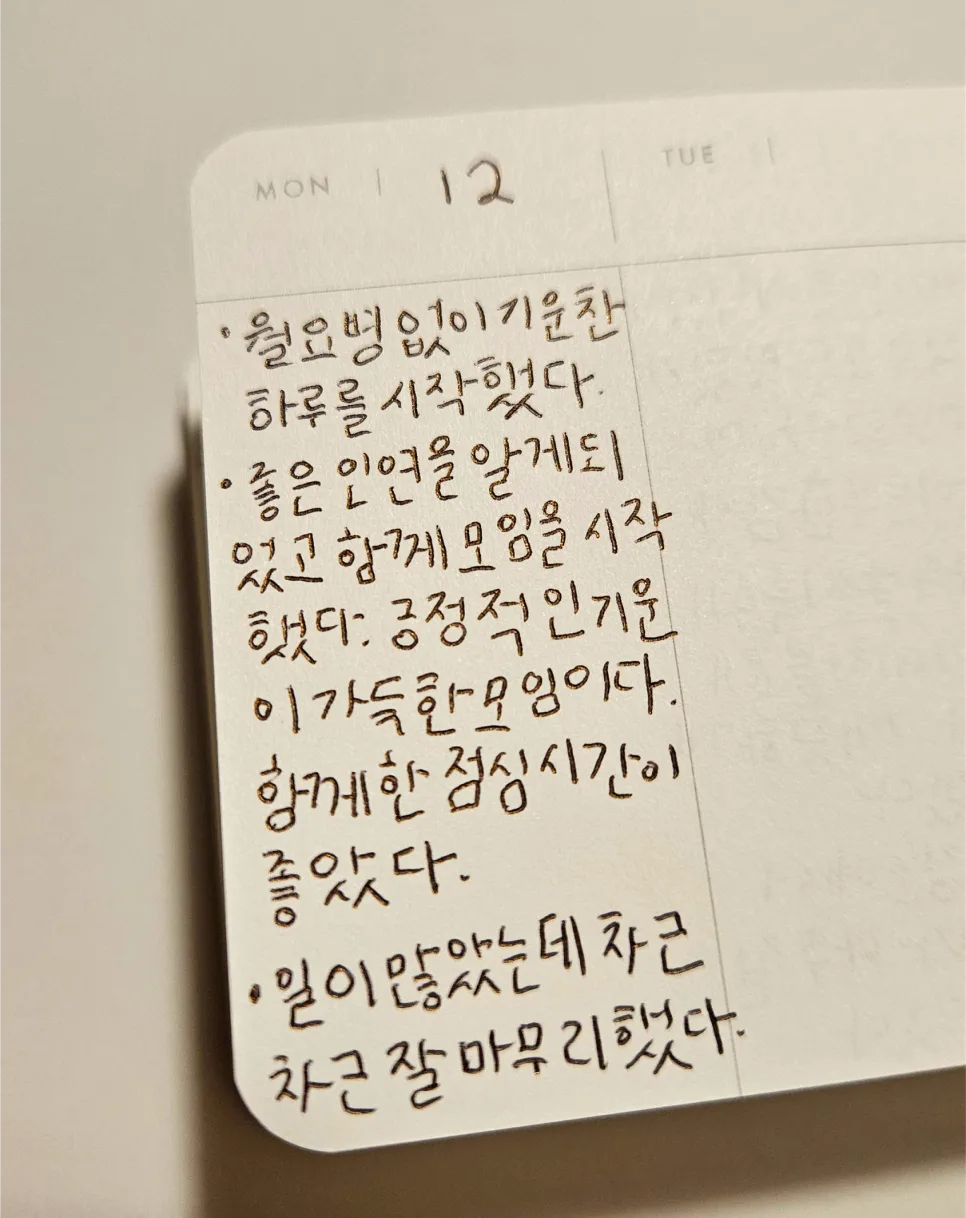 MON | 12
TUE |
· 월요병 없이 기운찬
하루를 시작했다.
· 좋은 인연을 알게되
었고 함께 모임을 시작
했다. 긍정적인 기운
이 가득한 모임이다.
함께한 점심시간이
좋았다.
· 일이 많았는데 차근
차근 잘 마무리했다.